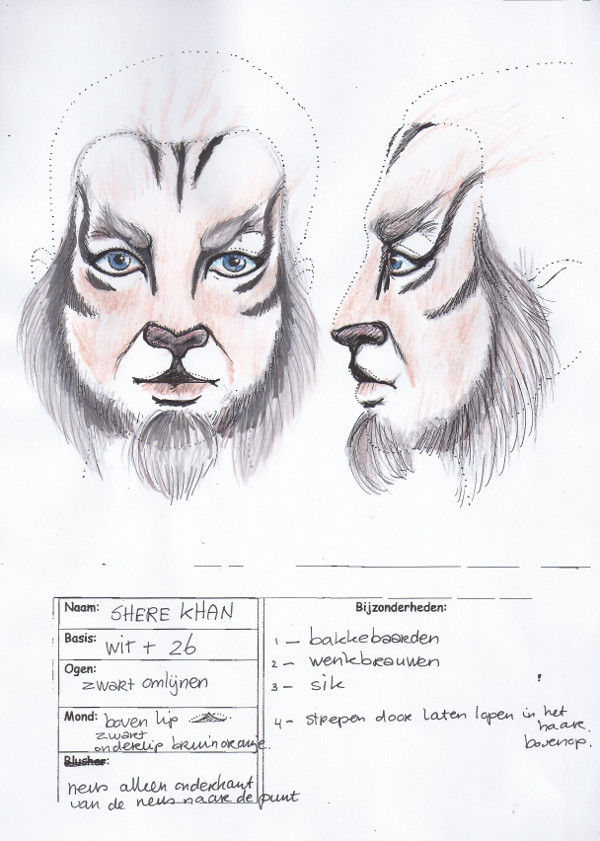 Naam: SHERE KHAN
Basis: wit + 26
Ogen:
zwart omlijnen
Mond: boven lip
zwart
onderlip bruinoranje.
Blusher:
neus alleen onderkant
van de neus naar de punt
Bijzonderheden:
1 – bakkebaarden
2 – wenkbrauwen
3 – sik
4 – strepen door laten lopen in het
haar.
bovenop.